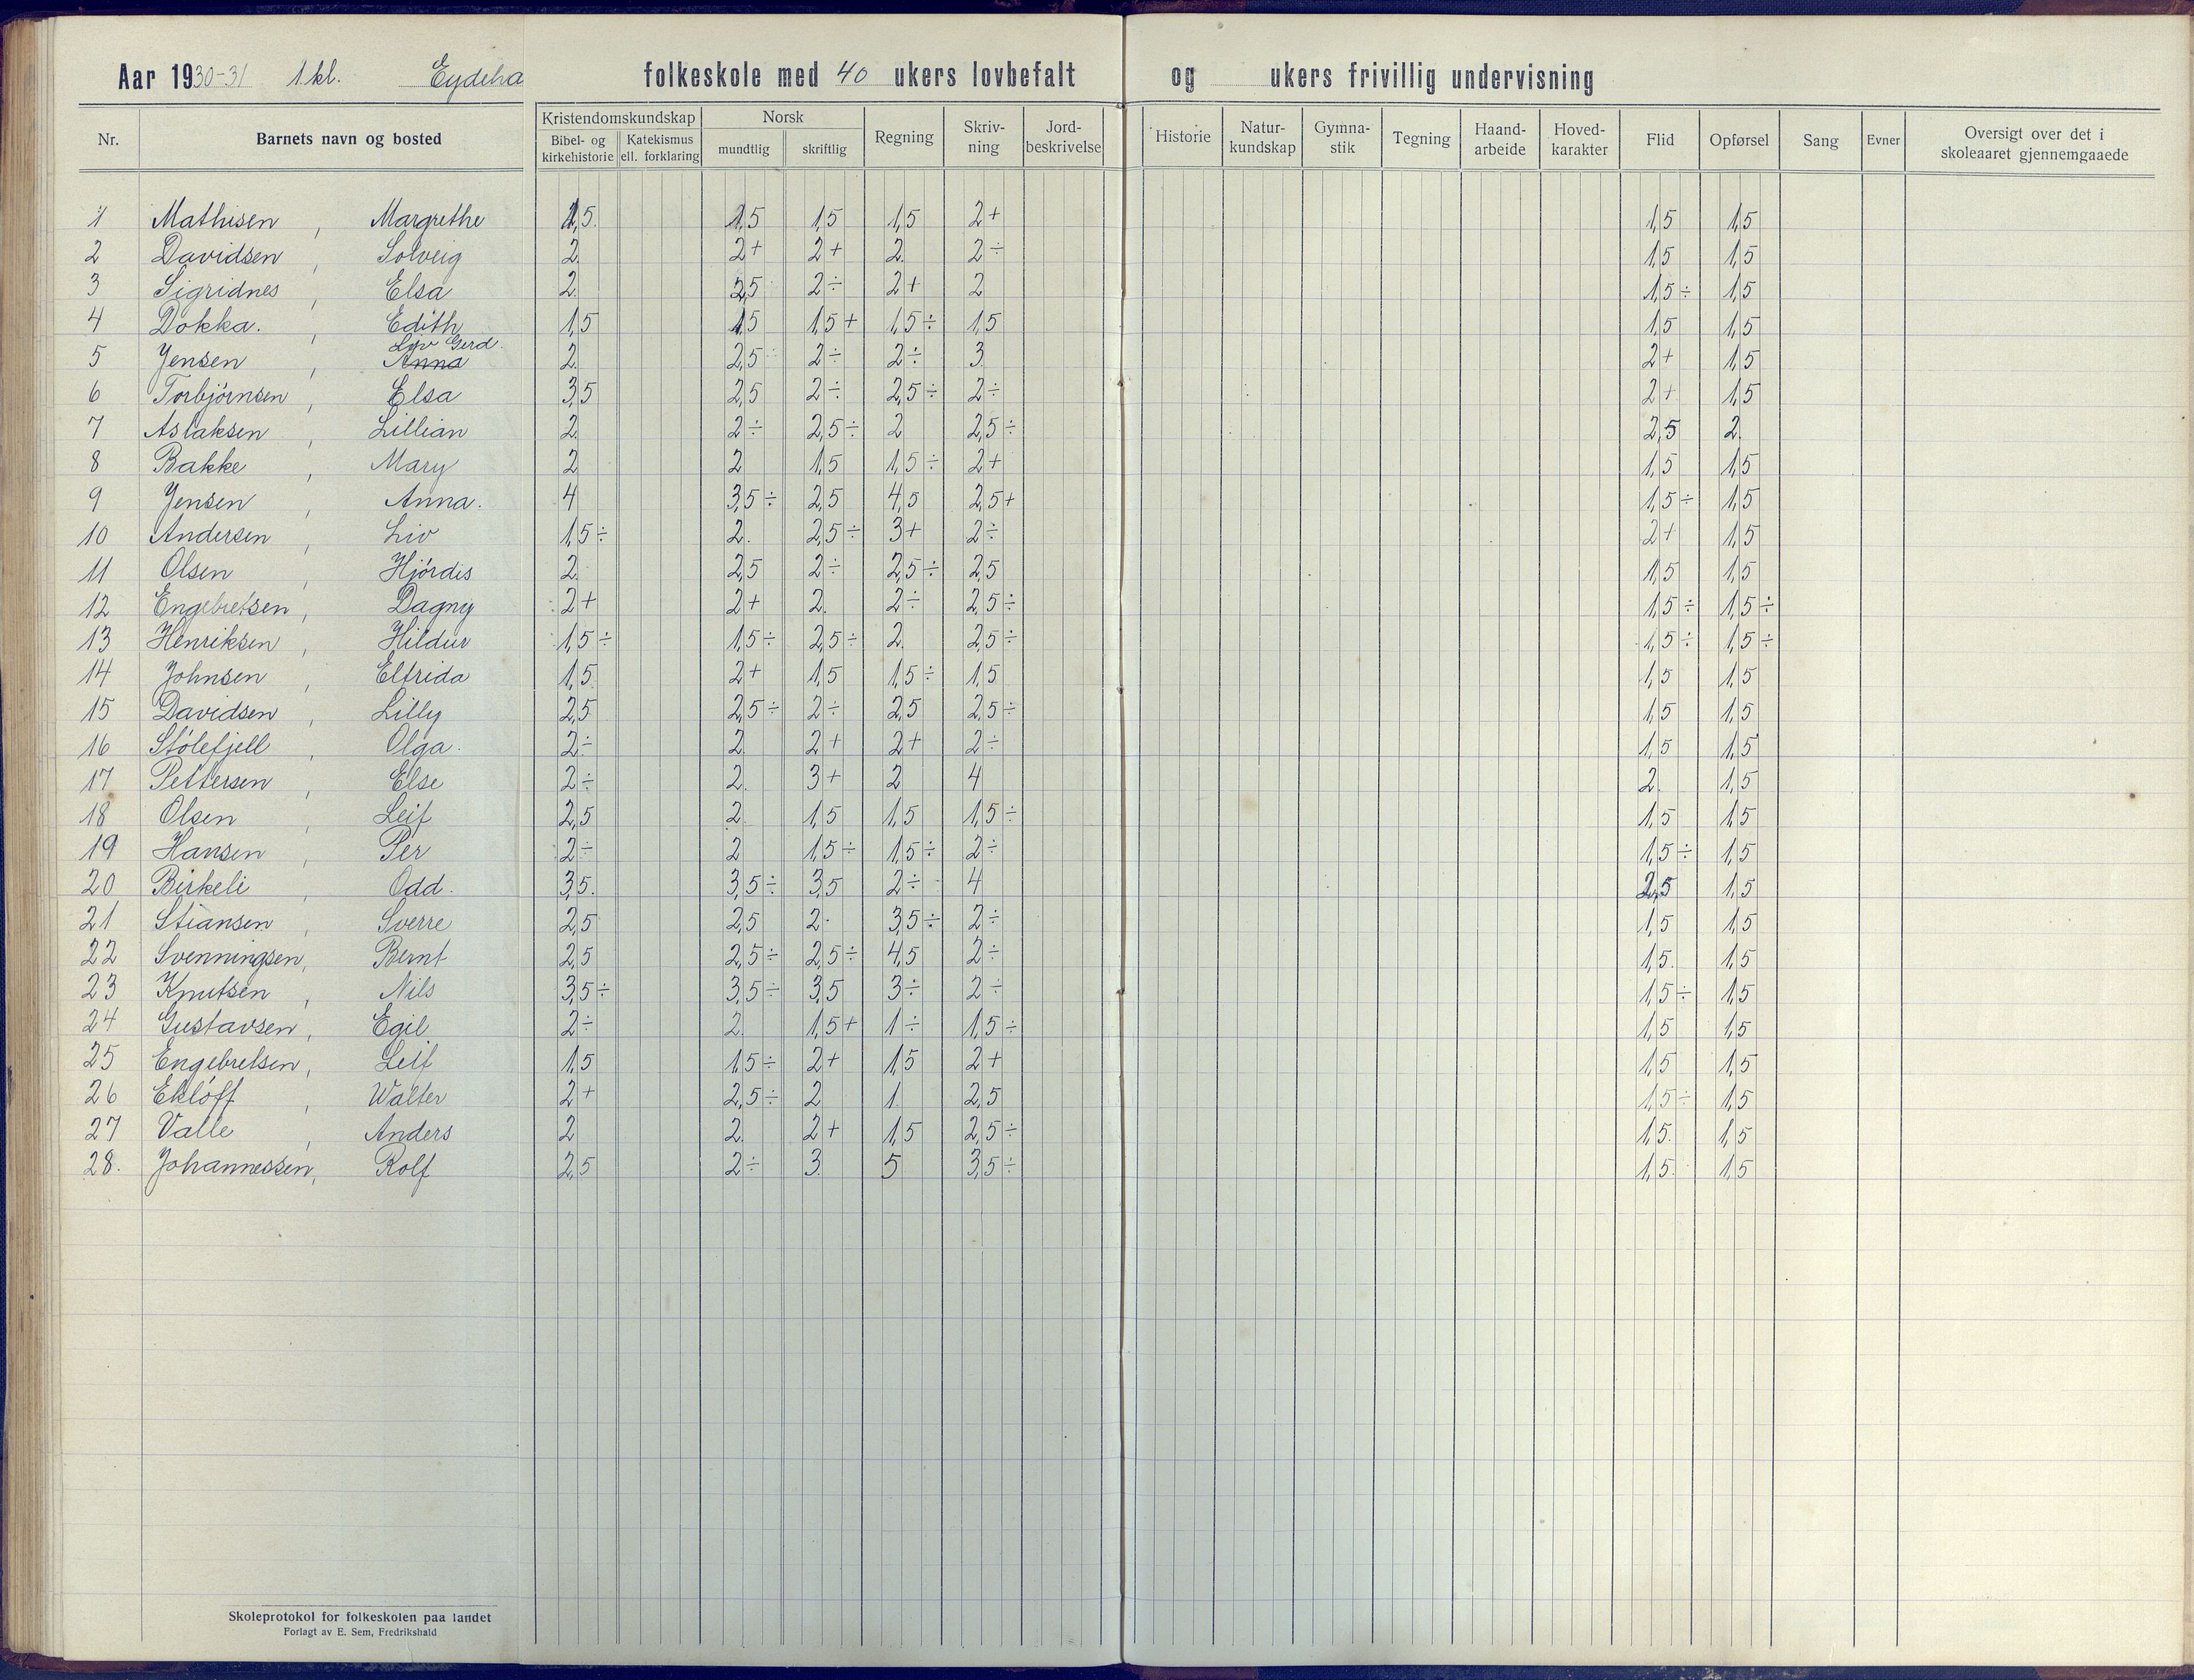 Aar 1930-31 1.kl. Eydeha folkeskole med 40 ukers lovbefalt og ukers frivillig undervisning
Nr. Barnets navn og bosted Kristendomskundskap Bibel- og kirkehistorie Katekismus ell. forklaring Norsk mundtlig skriftlig Regning Skriv-ning Jord-beskrivelse Historie Natur-kundskap Gymna-stik Tegning Haand-arbeide Hoved-karakter Flid Opførsel Sang Evner Oversigt over det i skoleaaret gjennemgaaede
1 Mathisen, Margrethe 1,5 1,5 1,5 1,5 2+ 1,5 1,5
2 Davidsen, Solveig 2 2+ 2+ 2 2÷ 1,5 1,5
3 Sigridnes, Elsa 2 2,5 2÷ 2+ 2 1,5÷ 1,5
4 Dokka, Edith 1,5 1,5 1,5+ 1,5÷ 1,5 1,5 1,5
Liv Gerd
5 Jensen, Anna 2 2,5÷ 2÷ 2÷ 3 2+ 1,5
6 Torbjørnsen, Elsa 3,5 2,5 2÷ 2,5÷ 2÷ 2+ 1,5
7 Aslaksen, Lillian 2 2÷ 2,5÷ 2 2,5÷ 2,5 2
8 Bakke, Mary 2 2 1,5 1,5÷ 2+ 1,5 1,5
9 Jensen, Anna. 4 3,5÷ 2,5 4,5 2,5+ 1,5÷ 1,5
10 Andersen, Liv 1,5÷ 2. 2,5÷ 3+ 2÷ 2+ 1,5
11 Olsen, Hjørdis 2 2,5 2÷ 2,5÷ 2,5 1,5 1,5
12 Engebretsen, Dagny 2+ 2+ 2. 2÷ 2,5÷ 1,5÷ 1,5÷
13 Henriksen, Hildur 1,5÷ 1,5÷ 2,5÷ 2. 2,5÷ 1,5÷ 1,5÷
14 Johnsen, Elfrida 1,5 2+ 1,5 1,5÷ 1,5 1,5 1,5
15 Davidsen, Lilly 2,5 2,5÷ 2÷ 2,5 2,5÷ 1,5 1,5
16 Stølefjell, Olga. 2÷ 2 2+ 2+ 2÷ 1,5 1,5
17 Pettersen, Else 2÷ 2. 3+ 2 4 2. 1,5
18 Olsen, Leif 2,5 2 1,5 1,5 1,5÷ 1,5 1,5
19 Hansen, Per 2÷ 2 1,5÷ 1,5÷ 2÷ 1,5÷ 1,5
20 Birkeli, Odd. 3,5. 3,5÷ 3,5 2÷ 4 2,5 1,5
21 Stiansen, Sverre 2,5 2,5 2- 3,5÷ 2÷ 1,5 1,5
22 Svenningsen, Bernt 2,5 2,5÷ 2,5÷ 4,5 2÷ 1,5. 1,5
23 Knutsen, Nils 3,5÷ 3,5÷ 3,5 3÷ 2÷ 1,5÷ 1,5
24 Gustavsen, Egil 2÷ 2. 1,5+ 1÷ 1,5÷ 1,5 1,5
25 Engebretsen, Leif 1,5 1,5÷ 2+ 1,5 2+ 1,5 1,5
26 Ekløff, Walter 2+ 2,5÷ 2 1. 2,5 1,5÷ 1,5
27 Valle, Anders 2 2. 2+ 1,5 2,5÷ 1,5. 1,5
28. Johannessen, Rolf 2,5 2÷ 3. 5 3,5÷ 1,5. 1,5
Skoleprotokol for folkeskolen paa landet
Forlagt av E. Sem, Fredrikshald